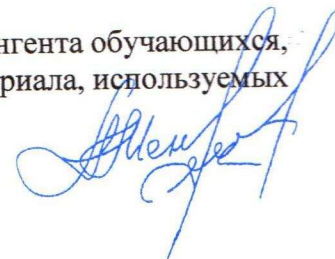 нгента обучающихся,
риала, используемых